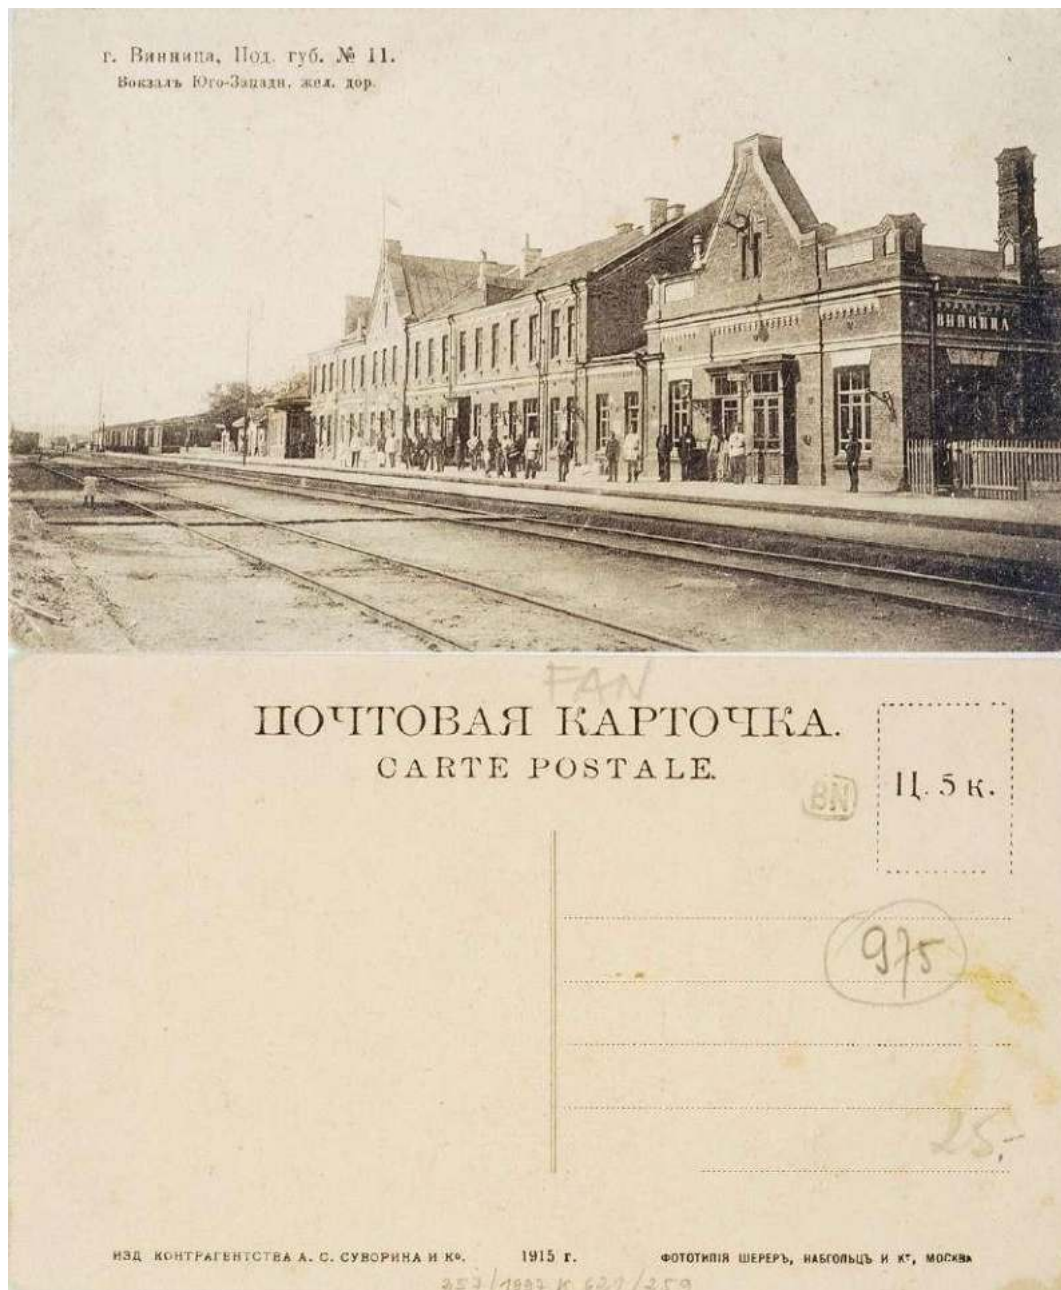 г. Винница, Под. губ. № 11.
Вокзалъ Юго-Западн. жел. дор.
ВИННИЦА
FAN
ПОЧТОВАЯ КАРТОЧКА.
CARTE POSTALE.
BN
Ц. 5 к.
975
25,-
ИЗД КОНТРАГЕНТСТВА А. С. СУВОРИНА И Кº.
1915 г.
ФОТОТИПІЯ ШЕРЕРЪ, НАБГОЛЬЦЪ И Кº, МОСКВА